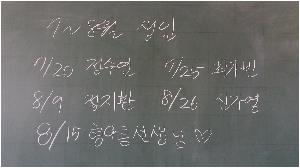 7~8월 생일
7/20 정수연 7/25 최가빈
8/9 정지환 8/26 신가영
8/15 선생님 ♡